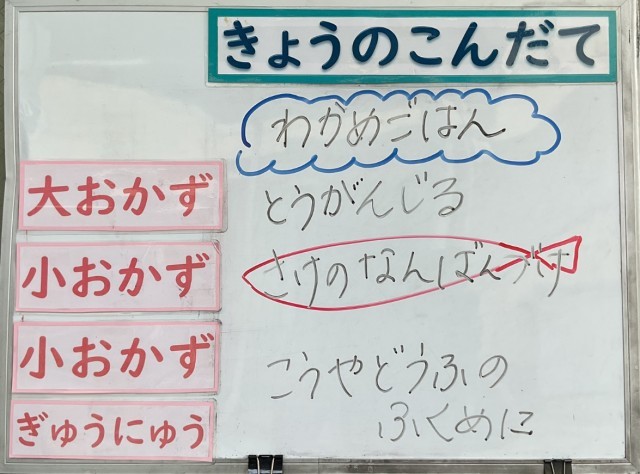 きょうのこんだて
わかめごはん
大おかず とうがんじる
小おかず さけのなんばんづけ
小おかず こうやどうふの
ふくめに
ぎゅうにゅう